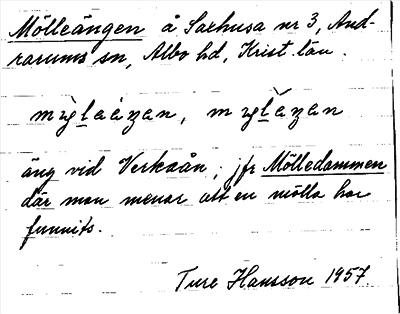 Mölleängen å Saxhusa nr 3, And-
rarums sn, Albo hd, Krist. län.
mỳḷaáꞃan, mỳḷǎꞃan
äng vid Verkaån; jfr Mölledammen
där man menar att en mölla har
funnits.
Ture Hansson 1957